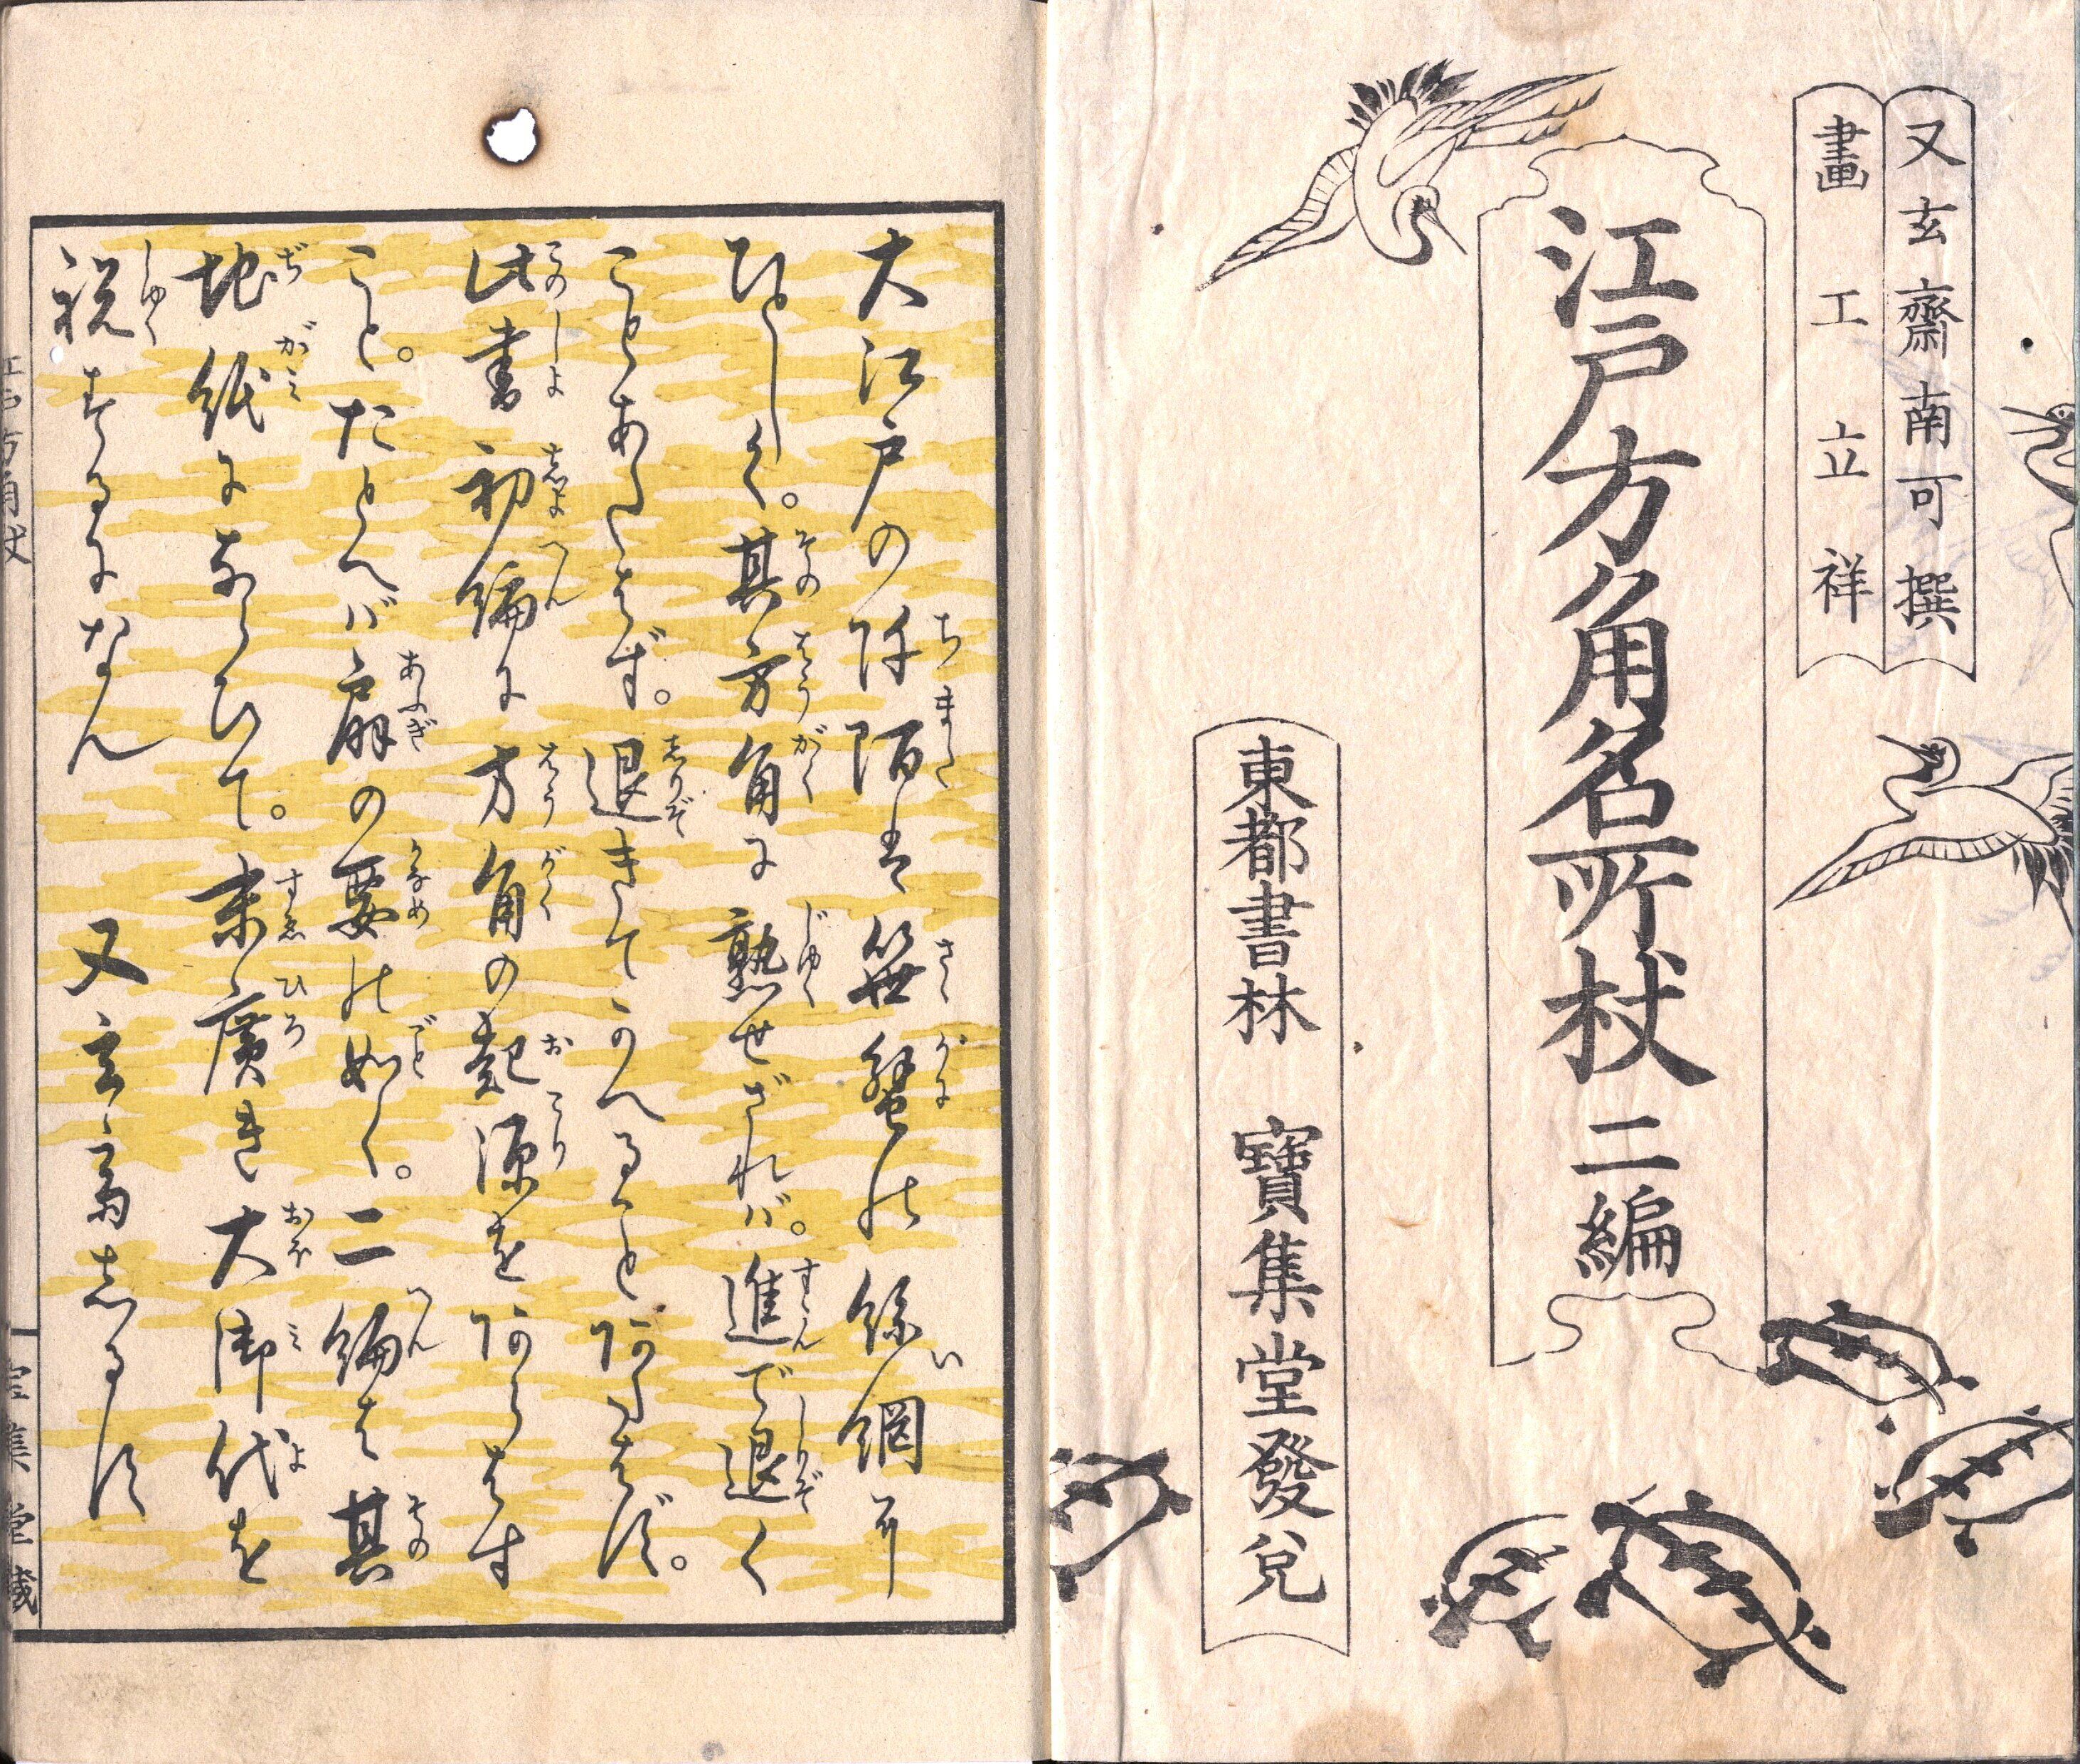 又玄齋南可撰
畫工立祥
江戸方角名所杖二編
東都書林 寶集堂發兌
大江戸の阡陌は笹蟹の絲網に
ひとしく。其方角に熟せざれバ。進で退く
ことあたはず。退きてかへること阿たはず。
此書初編に方角の起源を阿らはす
こと。たとへバ扇の要の如く。二編は其
地紙にならひて。末廣き大御代を
祝するになん
又玄斎しるす